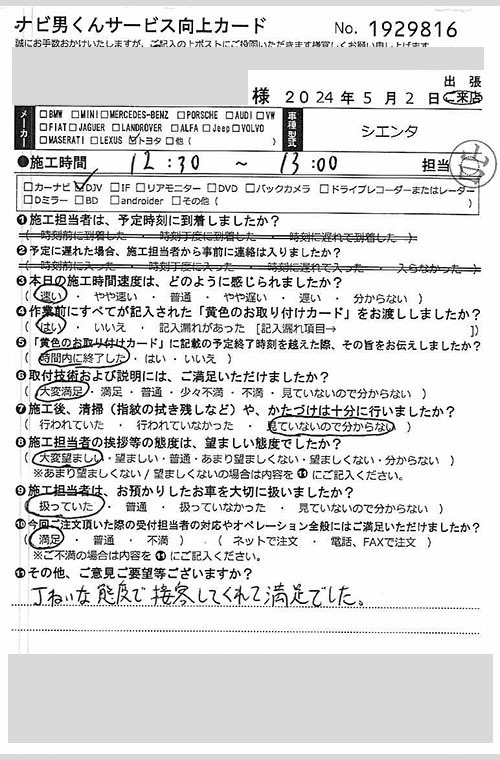 ナビ男くんサービス向上カード No. 1929816
誠にお手数おかけいたしますが、ご記入の上ポストにご投函いただきます様宜しくお願い申し上げます。
様 2024年5月2日 出張・ご来店
メーカー □BMW □MINI □MERCEDES-BENZ □PORSCHE □AUDI □VW
□FIAT □JAGUER □LANDROVER □ALFA □Jeep □VOLVO
□MASERATI □LEXUS ☑トヨタ □他( )
車種型式 シエンタ
●施工時間 12:30 ~ 13:00 担当
□カーナビ ☑DJV □IF □リアモニター □DVD □バックカメラ □ドライブレコーダーまたはレーダー
□Dミラー □BD □androider □その他( )
❶施工担当者は、予定時刻に到着しましたか?
( 時刻前に到着した ・ 時刻丁度に到着した ・ 時刻に遅れて到着した )
❷予定に遅れた場合、施工担当者から事前に連絡は入りましたか?
( 時刻前に入った ・ 時刻丁度に入った ・ 時刻に遅れて入った ・ 入らなかった )
❸本日の施工時間速度は、どのように感じられましたか?
( 速い ・ やや速い ・ 普通 ・ やや遅い ・ 遅い ・ 分からない )
❹作業前にすべてが記入された「黄色のお取り付けカード」をお渡ししましたか?
( はい ・ いいえ ・ 記入漏れがあった [記入漏れ項目→ ])
❺「黄色のお取り付けカード」に記載の予定終了時刻を越えた際、その旨をお伝えしましたか?
( 時間内に終了した ・ はい ・ いいえ )
❻取付技術および説明には、ご満足いただけましたか?
( 大変満足 ・ 満足 ・ 普通 ・ 少々不満 ・ 不満 ・ 見ていないので分からない )
❼施工後、清掃(指紋の拭き残しなど)や、かたづけは十分に行いましたか?
( 行われていた ・ 行われていなかった ・ 見ていないので分からない )
❽施工担当者の挨拶等の態度は、望ましい態度でしたか?
( 大変望ましい ・ 望ましい ・ 普通 ・ あまり望ましくない ・ 望ましくない ・ 分からない )
※あまり望ましくない / 望ましくないの場合は内容を⓫にご記入ください。
❾施工担当者は、お預かりしたお車を大切に扱いましたか?
( 扱っていた ・ 普通 ・ 扱っていなかった ・ 見ていないので分からない )
❿今回ご注文頂いた際の受付担当者の対応やオペレーション全般にはご満足いただけましたか?
( 満足 ・ 普通 ・ 不満 ) ( ネットで注文 ・ 電話、FAXで注文 )
※ご不満の場合は内容を⓫にご記入ください。
⓫その他、ご意見ご要望等ございますか?
丁ねいな態度で接客してくれて満足でした。